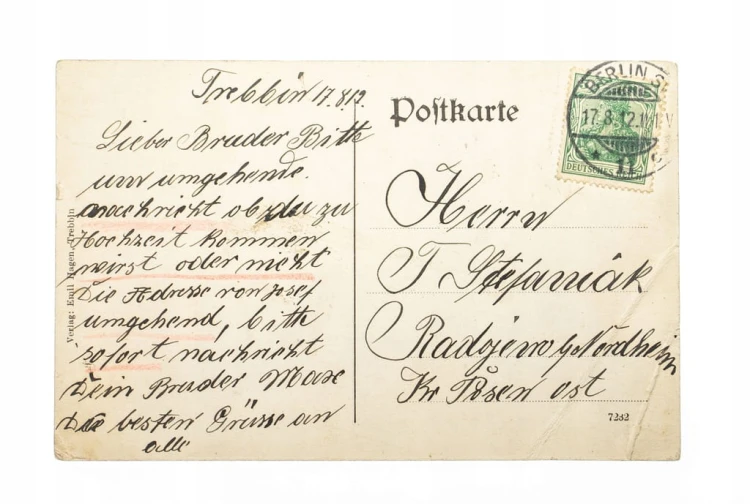 Trebbin 17.8.12.
Lieber Bruder Bitte
um umgehende
nachricht ob du zu
Hochzeit kommen
wirst oder nicht
Die Adresse von Josef
umgehend, bitte
sofort nachricht
Dein Bruder Max
Die besten Grüsse an
alle
Verlag: Emil Hagen, Trebbin
Postkarte
BERLIN S
17.8.12.11-1
* 11
DEUTSCHES REICH
Herrn
T Stefaniak
Kr Posen ost
7232